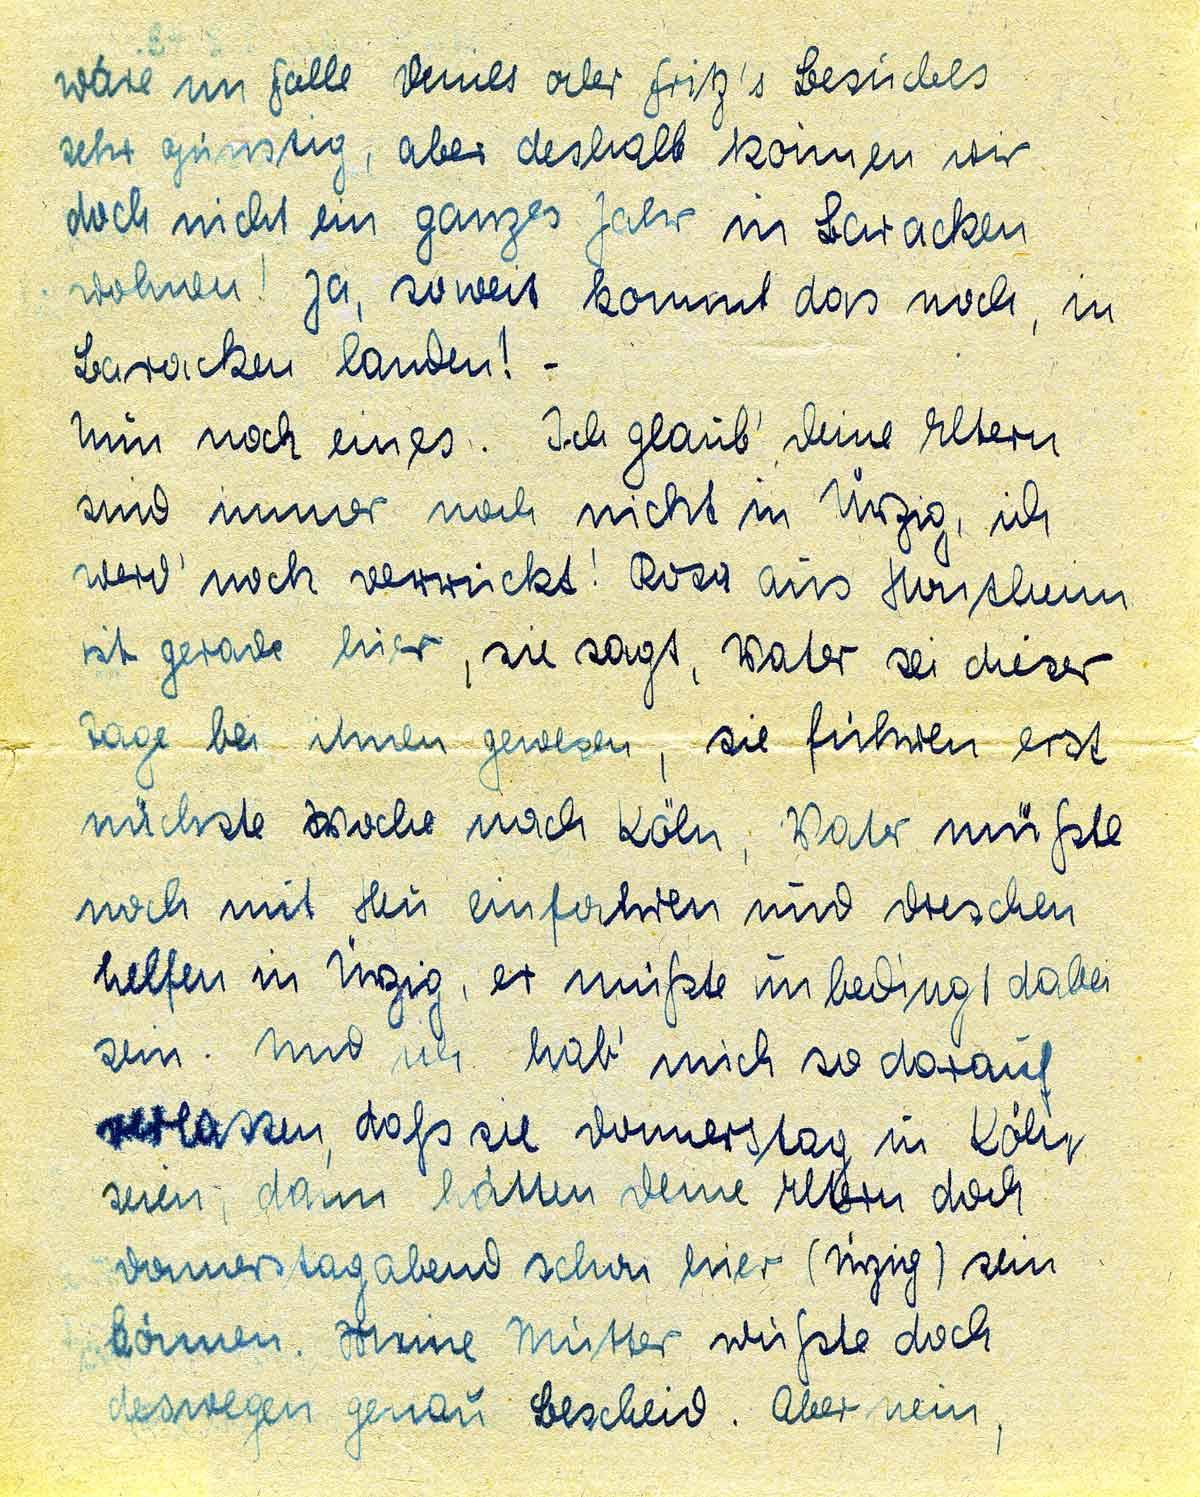 wäre im Falle Deines oder Fritz's Besuches
sehr günstig, aber deshalb können wir
doch nicht ein ganzes Jahr in Baracken
wohnen! Ja, soweit kommt das noch, in
Baracken landen! -
Nun noch eines. Ich glaub' deine Eltern
sind immer noch nicht in Ürzig, ich
werd' noch verrückt! Rosa aus Hontheim
ist gerade hier, sie sagt, Vater sei dieser
Tage bei ihnen gewesen, sie führen erst
nächste Woche nach Köln, Vater müßte
noch mit Heu einfahren und dreschen
helfen in Ürzig, er müßte unbedingt dabei
sein. Und ich hab' mich so darauf
verlassen, daß sie Donnerstag in Köln
seien, dann hätten Deine Eltern doch
Donnerstagabend schon hier (Ürzig) sein
können. Meine Mutter wußte doch
deswegen genau Bescheid. Aber nein,